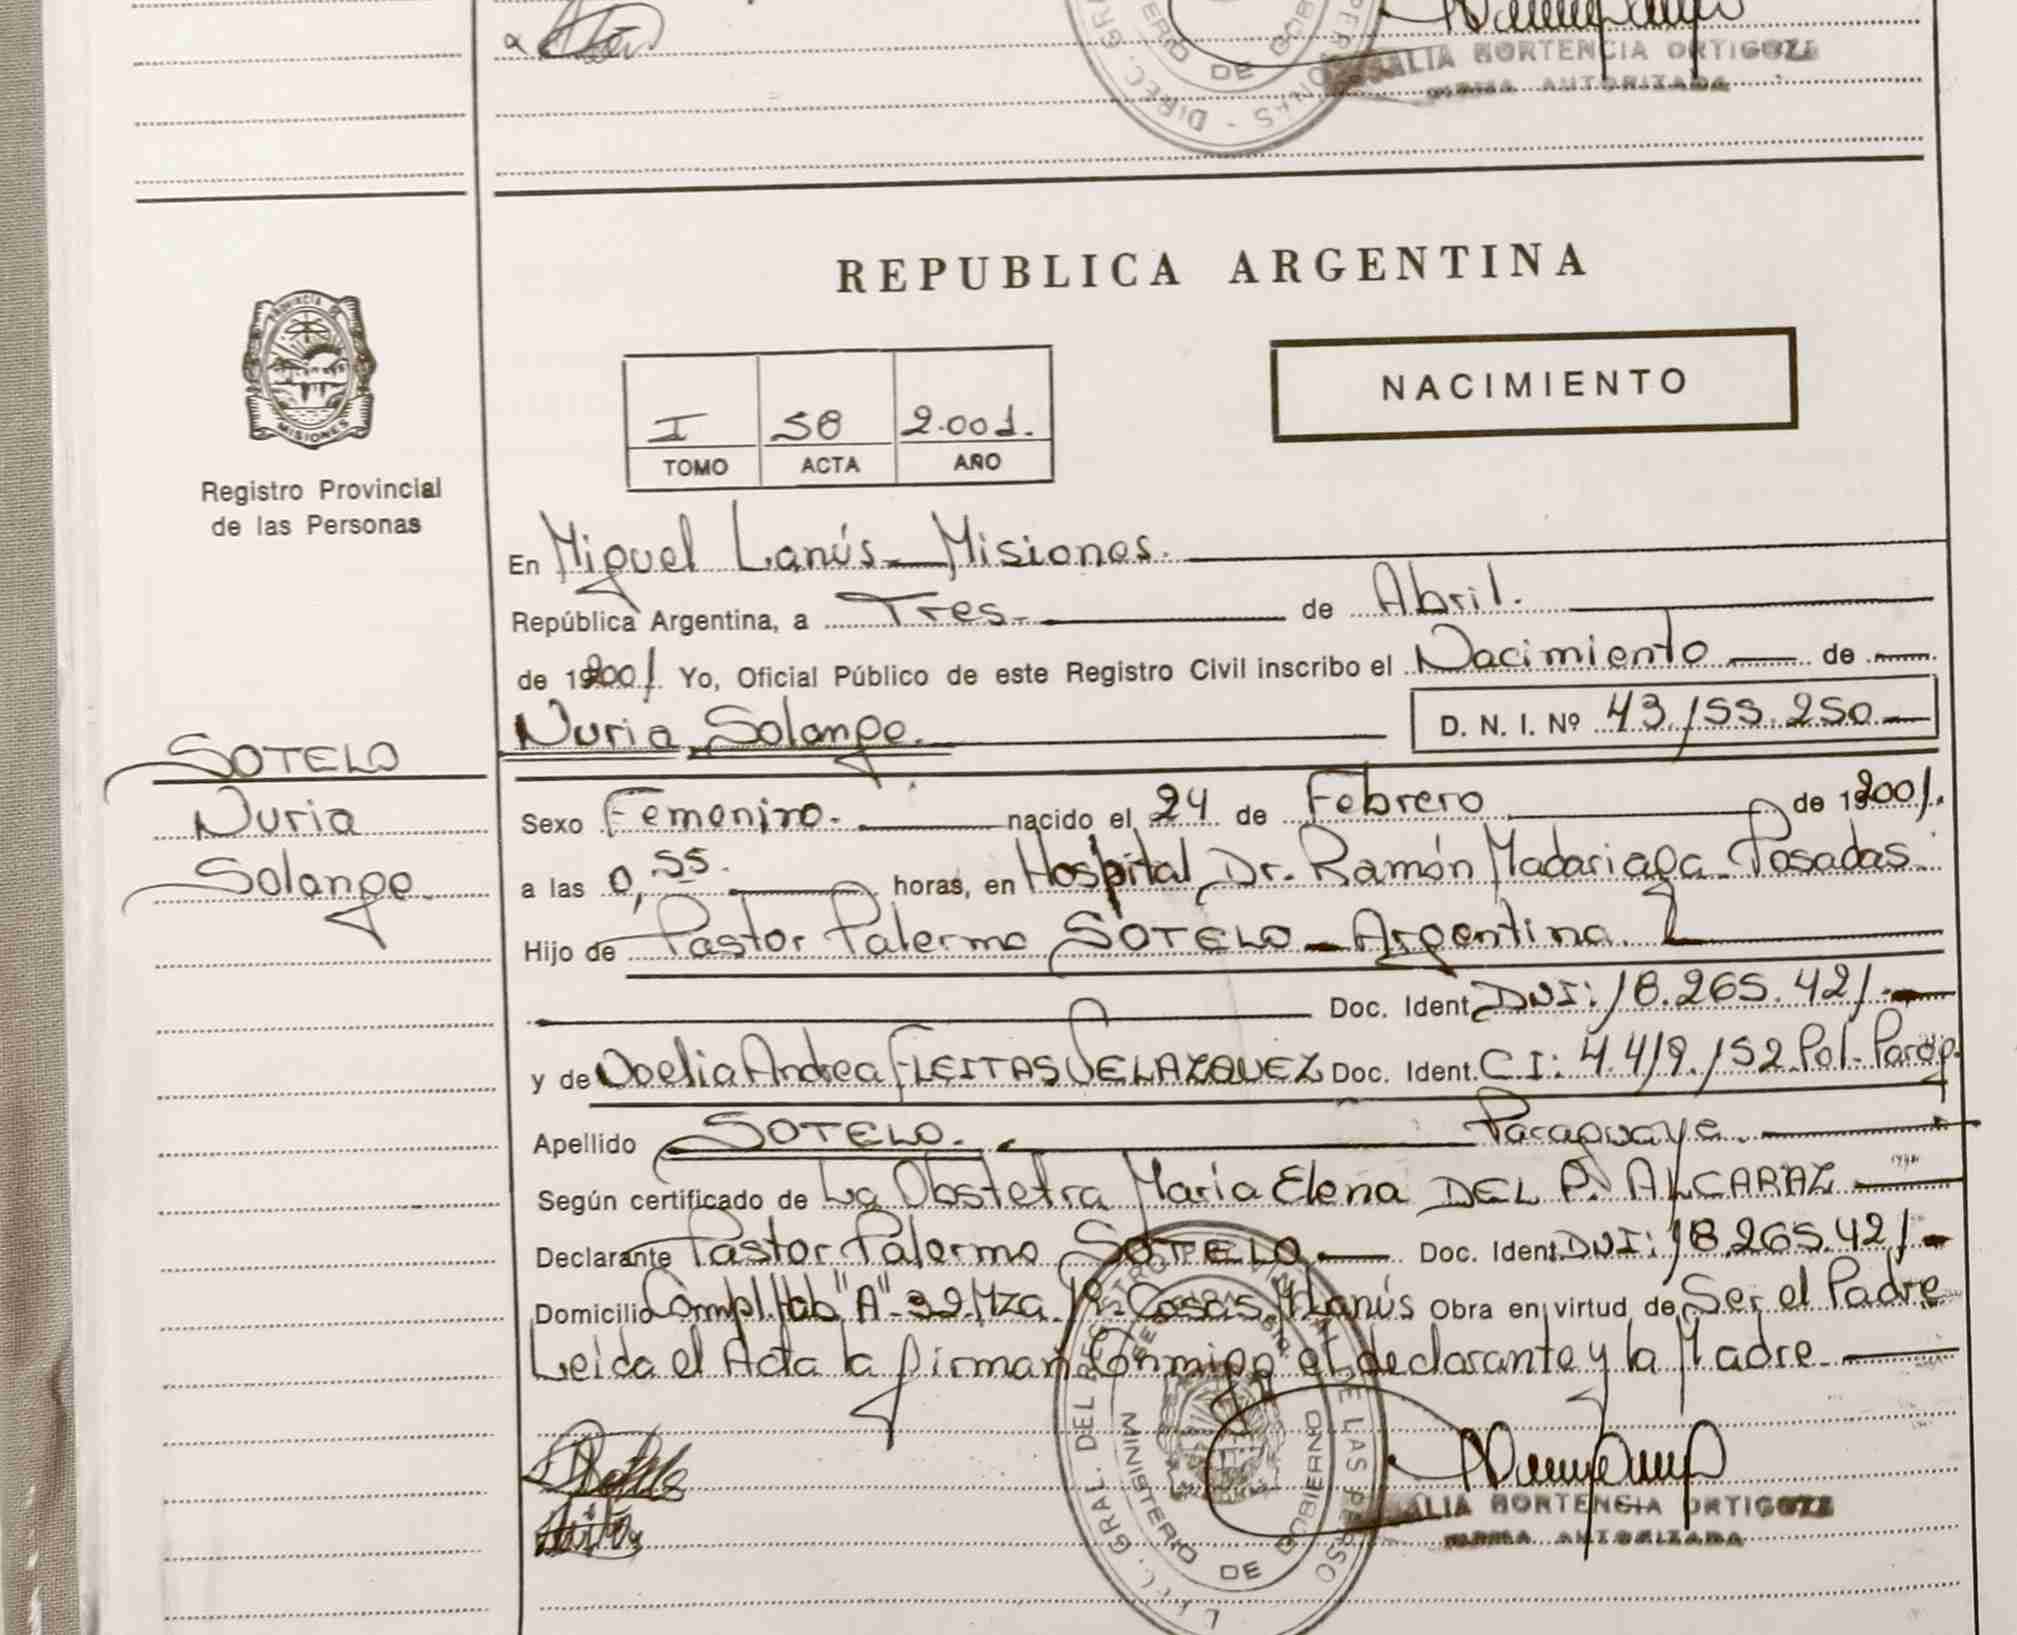 ALIA HORTENCIA ORTIGOZA
FIRMA AUTORIZADA
REPUBLICA ARGENTINA
PROVINCIA DE
MISIONES
Registro Provincial
de las Personas
I 58 2.001.
TOMO ACTA AÑO
NACIMIENTO
En Miguel Lanús - Misiones.
República Argentina, a Tres. de Abril.
de 19 2001 Yo, Oficial Público de este Registro Civil inscribo el Nacimiento de
Nuria Solange. D. N. I. Nº 43.155.250
SOTELO
Nuria
Solange.
Sexo Femenino. nacido el 24 de Febrero de 19 2001.
a las 0,55. horas, en Hospital Dr. Ramón Madariaga - Posadas.
Hijo de Pastor Palermo SOTELO - Argentina.
Doc. Ident. DNI: 18.265.421.
y de Noelia Andrea FLEITAS VELAZQUEZ Doc. Ident. CI: 4.419.152 Pol. Parag.
Apellido SOTELO. Paraguaya.
Según certificado de La Obstetra Maria Elena DEL P. ALCARAZ
Declarante Pastor Palermo SOTELO. Doc. Ident. DNI: 18.265.421
Domicilio Compl. Hab "A" - 32 Mza. 19 - Casas, M. Lanús Obra en virtud de Ser el Padre
Leida el Acta la firman Conmigo el declarante y la Madre
DIREC. GRAL. DEL REGISTRO PROVINCIAL DE LAS PERSO
MINISTERIO DE GOBIERNO
ALIA HORTENCIA ORTIGOZA
FIRMA AUTORIZADA